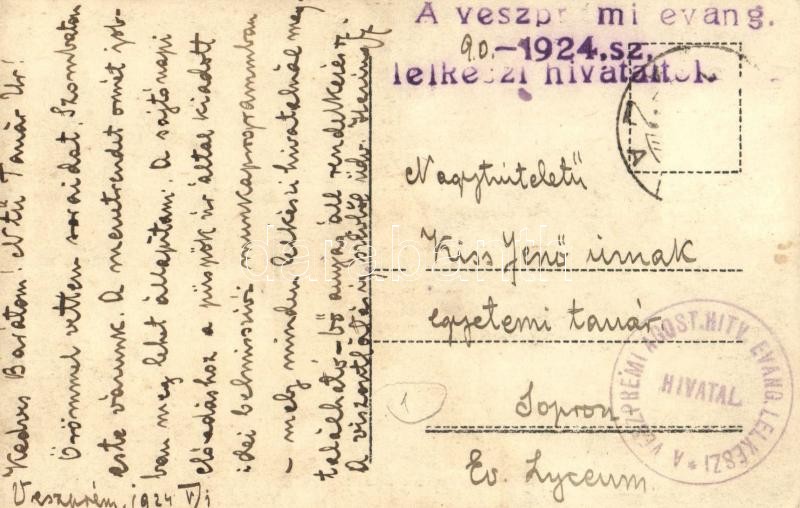 A veszprémi evang.
90.-1924.sz.
lelkészi hivataltól
Nagytiszteletű
Kiss Jenő úrnak
egyetemi tanár
Sopron
Ev. Lyceum.
1
A VESZPRÉMI ÁGOST. HITV. EVANG. LELKÉSZI
HIVATAL
Kedves Barátom! Ntű Tanár Úr!
Örömmel vettem soraidat. Szombaton
este várunk. A menetrendet onnét job-
ban meg lehet állapítani. A sajtónapi
előadáshoz a püspök úr által kiadott
idei belmissziói munkaprogrammban
- mely minden lelkészi hivatalnál meg-
található - bő anyag áll rendelkezésre.
A viszontlátásig szívből üdv.
Veszprém, 1924
darabanth